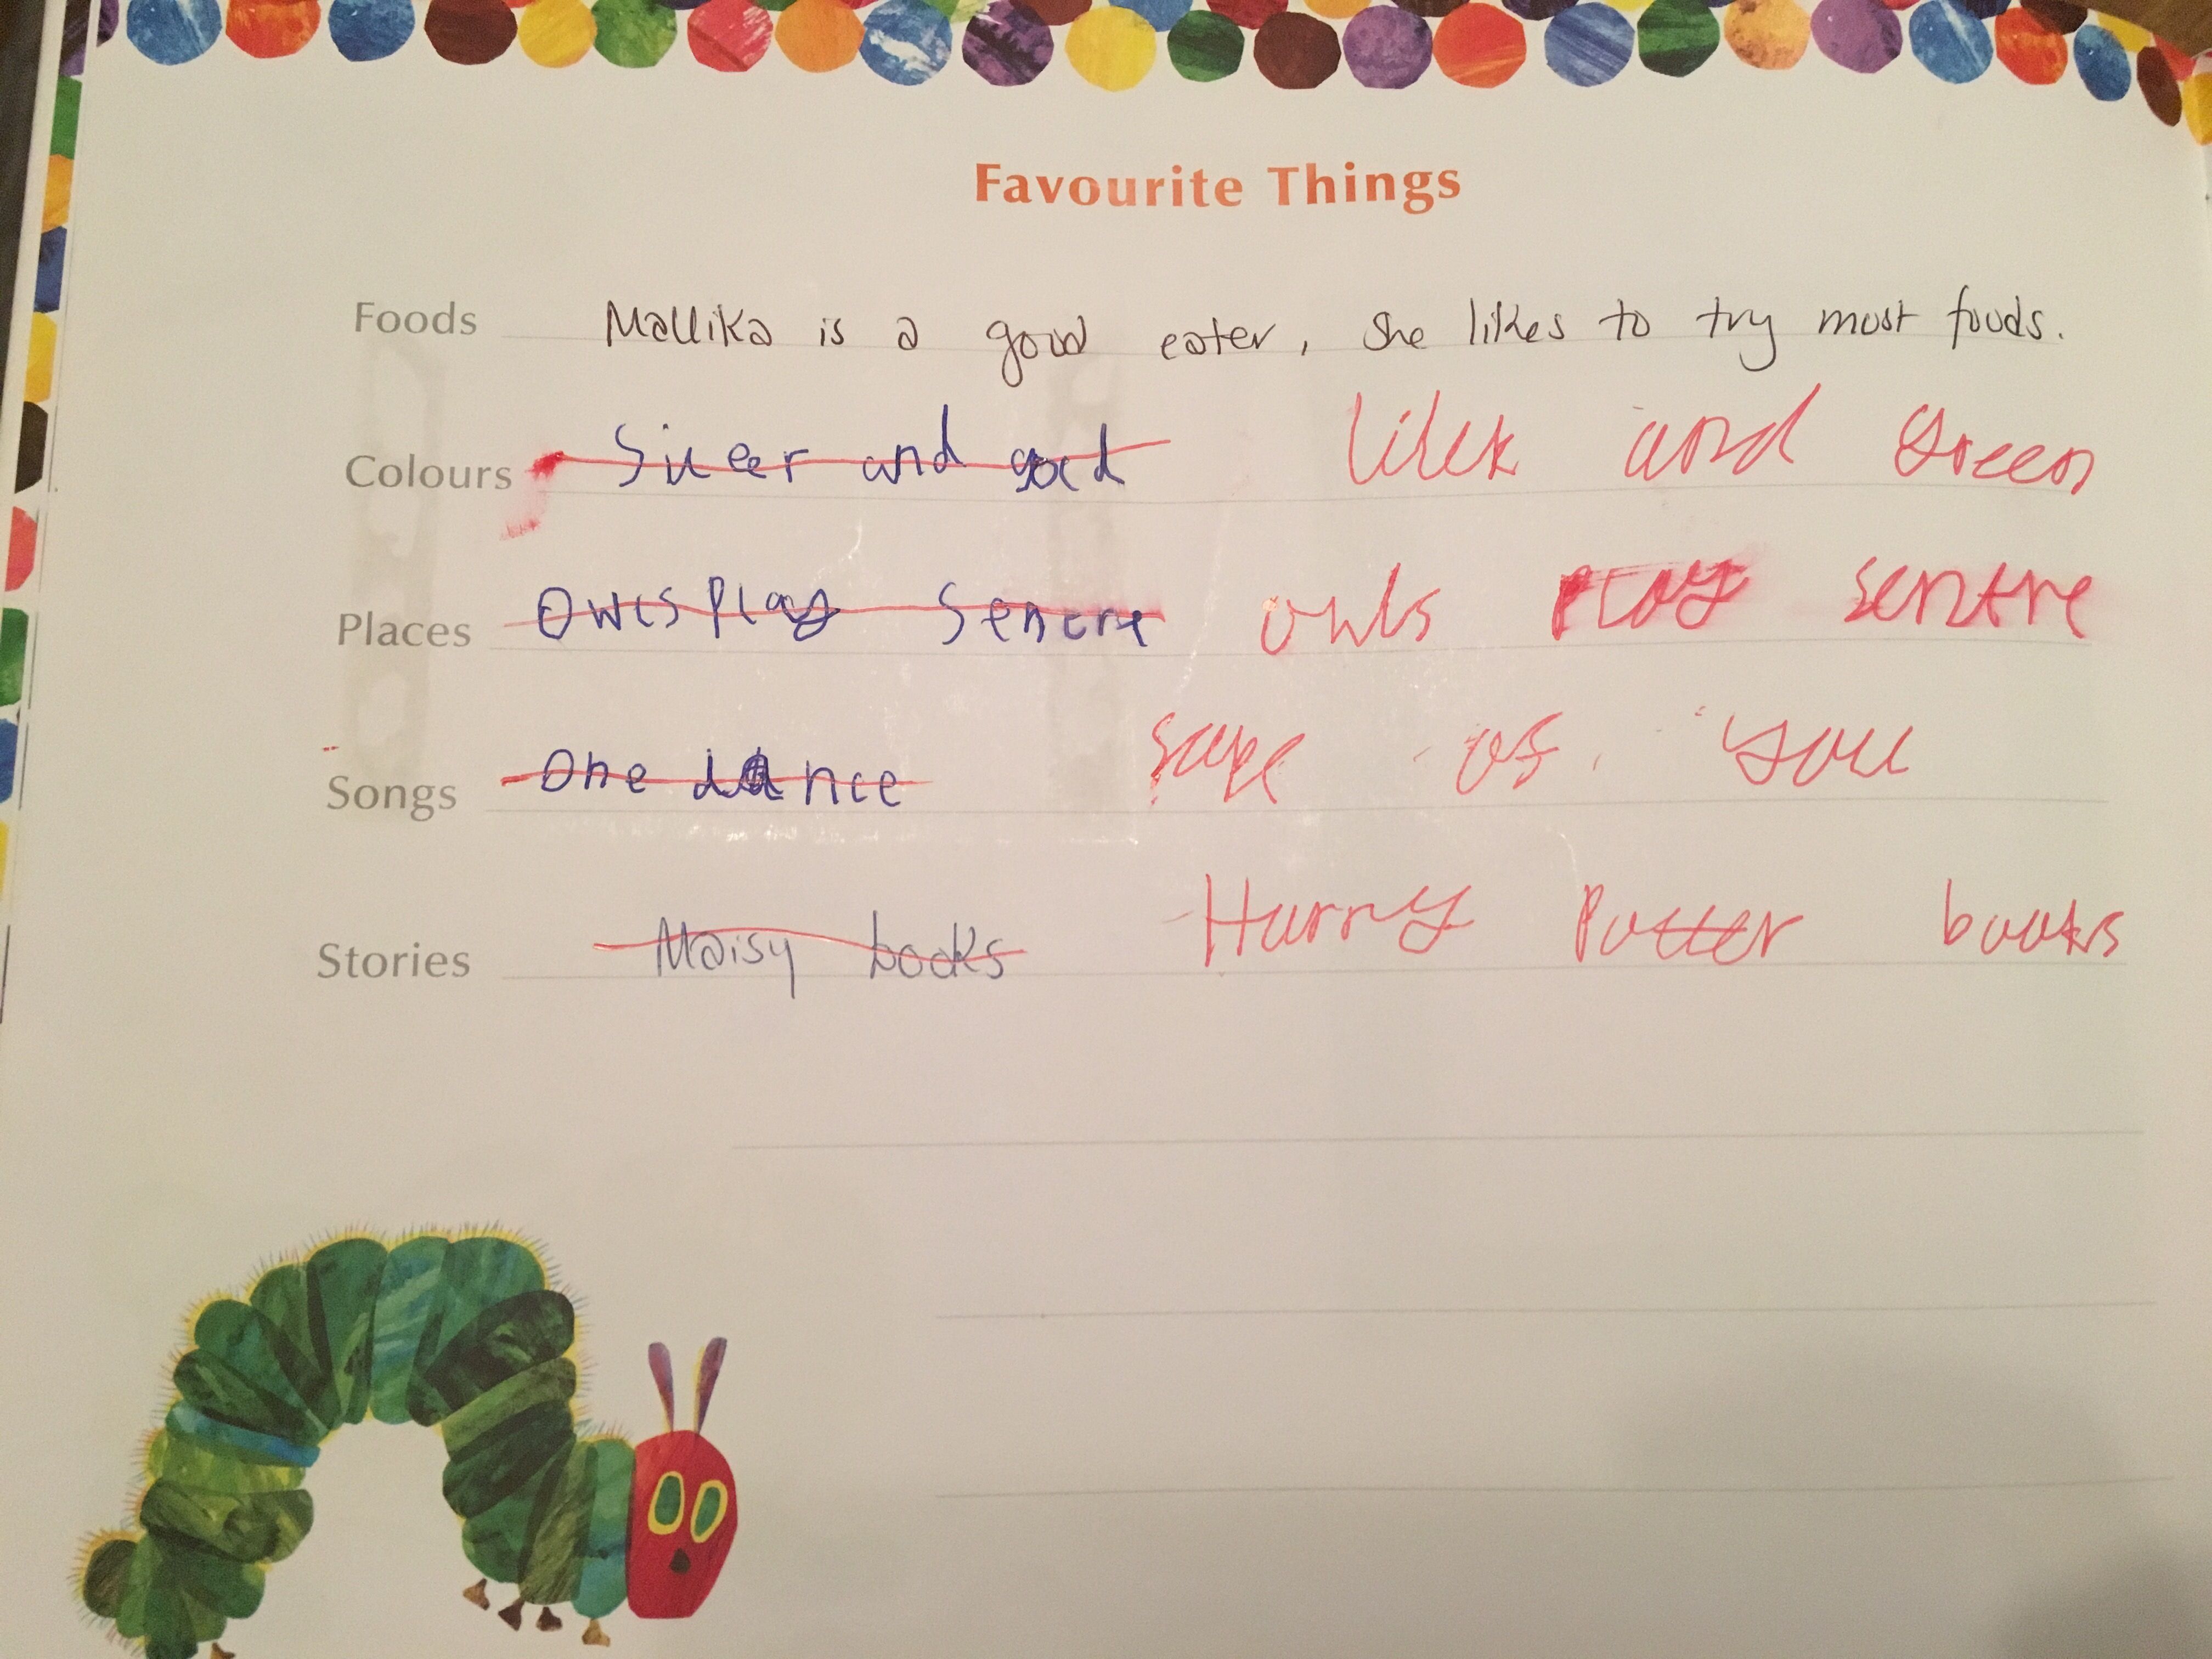 Favourite Things
Foods Mallika is a good eater, she likes to try most foods.
Colours Silcer and gold lilck and Green
Places Owls Play Sencre owls Play sentre
Songs One dance sape of you
Stories Maisy books Harry Potter books